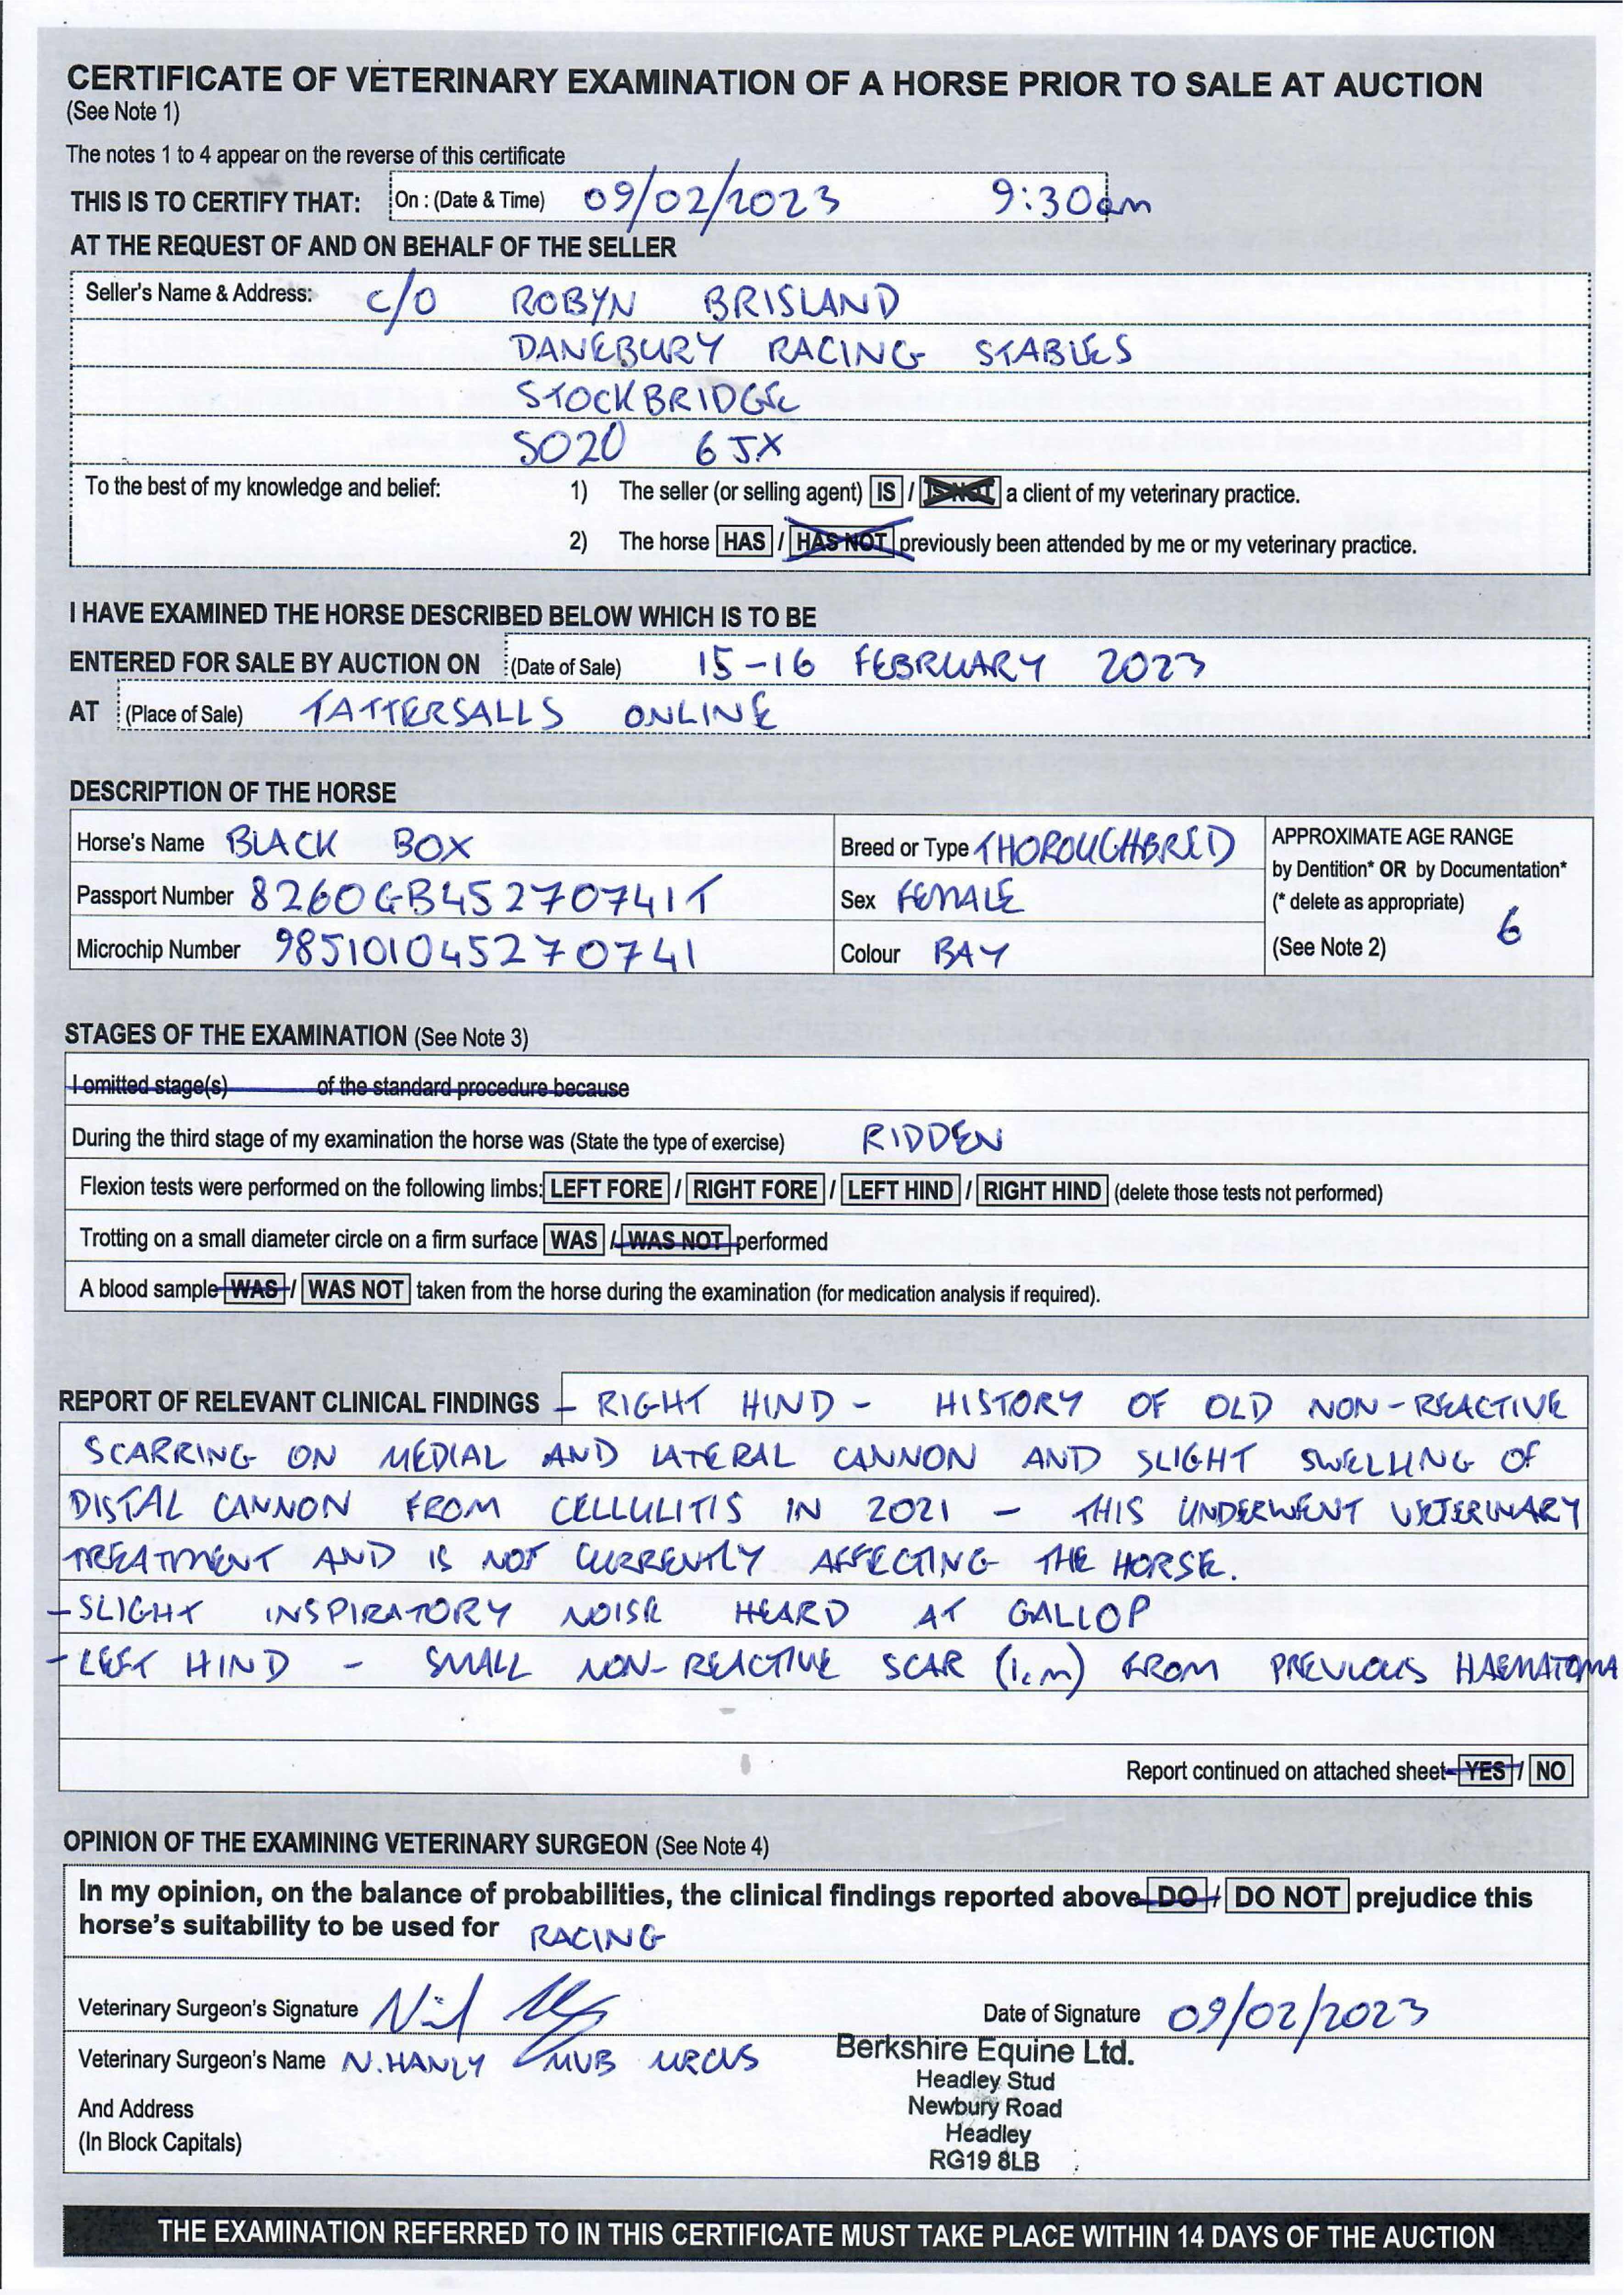 CERTIFICATE OF VETERINARY EXAMINATION OF A HORSE PRIOR TO SALE AT AUCTION
(See Note 1)
The notes 1 to 4 appear on the reverse of this certificate
THIS IS TO CERTIFY THAT: On : (Date & Time) 09/02/2023 9:30am
AT THE REQUEST OF AND ON BEHALF OF THE SELLER
Seller's Name & Address: C/O ROBYN BRISLAND
DANEBURY RACING STABLES
STOCKBRIDGE
SO20 6JX
To the best of my knowledge and belief: 1) The seller (or selling agent) IS / IS NOT a client of my veterinary practice.
2) The horse HAS / HAS NOT previously been attended by me or my veterinary practice.
I HAVE EXAMINED THE HORSE DESCRIBED BELOW WHICH IS TO BE
ENTERED FOR SALE BY AUCTION ON (Date of Sale) 15-16 FEBRUARY 2023
AT (Place of Sale) TATTERSALLS ONLINE
DESCRIPTION OF THE HORSE
Horse's Name BLACK BOX Breed or Type THOROUGHBRED APPROXIMATE AGE RANGE
by Dentition* OR by Documentation*
Passport Number 8260GB45270741T Sex FEMALE (* delete as appropriate) 6
Microchip Number 985101045270741 Colour BAY (See Note 2)
STAGES OF THE EXAMINATION (See Note 3)
I omitted stage(s) of the standard procedure because
During the third stage of my examination the horse was (State the type of exercise) RIDDEN
Flexion tests were performed on the following limbs: LEFT FORE / RIGHT FORE / LEFT HIND / RIGHT HIND (delete those tests not performed)
Trotting on a small diameter circle on a firm surface WAS / WAS NOT performed
A blood sample WAS / WAS NOT taken from the horse during the examination (for medication analysis if required).
REPORT OF RELEVANT CLINICAL FINDINGS - RIGHT HIND - HISTORY OF OLD NON-REACTIVE
SCARRING ON MEDIAL AND LATERAL CANNON AND SLIGHT SWELLING OF
DISTAL CANNON FROM CELLULITIS IN 2021 - THIS UNDERWENT VETERINARY
TREATMENT AND IS NOT CURRENTLY AFFECTING THE HORSE.
- SLIGHT INSPIRATORY NOISE HEARD AT GALLOP
- LEFT HIND - SMALL NON-REACTIVE SCAR (1cm) FROM PREVIOUS HAEMATOMA
Report continued on attached sheet YES / NO
OPINION OF THE EXAMINING VETERINARY SURGEON (See Note 4)
In my opinion, on the balance of probabilities, the clinical findings reported above DO / DO NOT prejudice this
horse's suitability to be used for RACING
Veterinary Surgeon's Signature Date of Signature 09/02/2023
Veterinary Surgeon's Name N. HANLY MVB MRCVS Berkshire Equine Ltd.
Headley Stud
And Address Newbury Road
(In Block Capitals) Headley
RG19 8LB
THE EXAMINATION REFERRED TO IN THIS CERTIFICATE MUST TAKE PLACE WITHIN 14 DAYS OF THE AUCTION